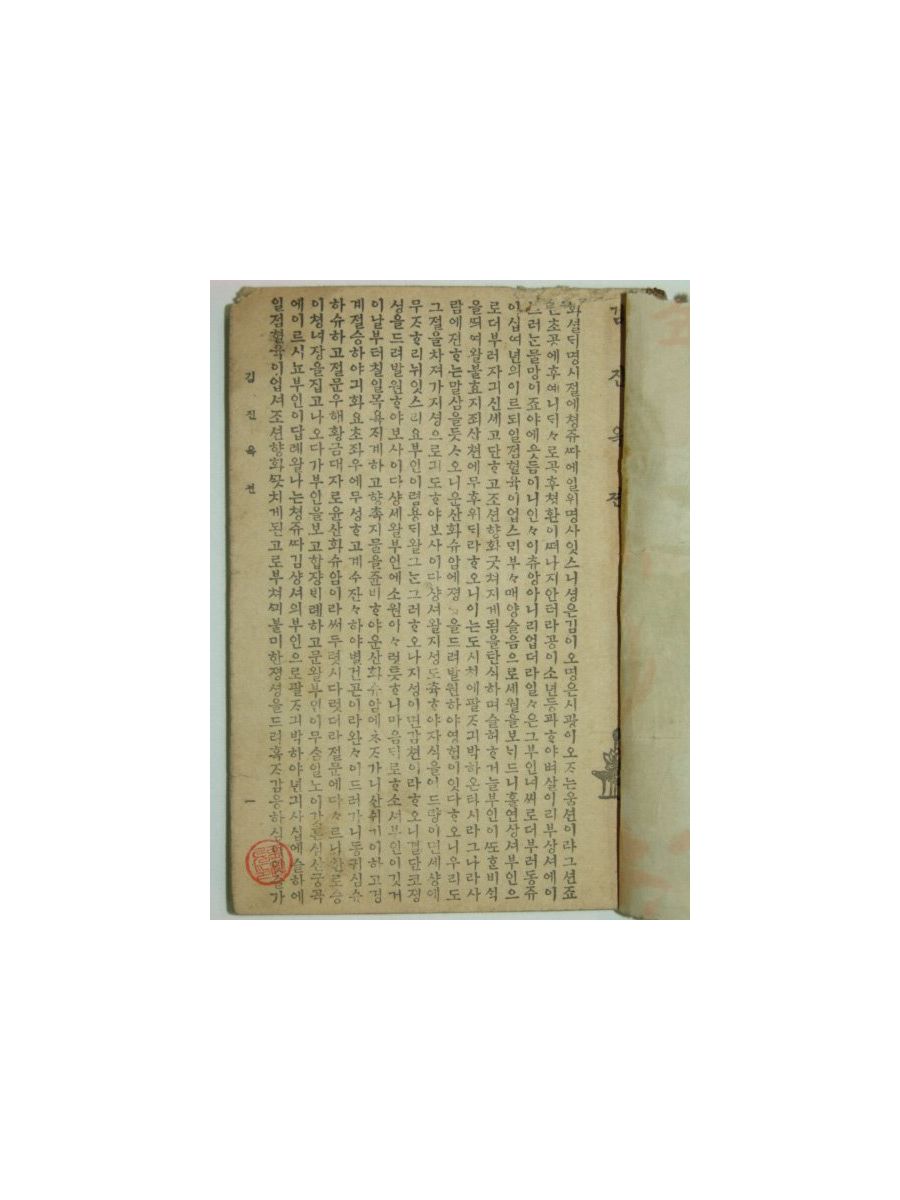 김진옥젼
화셜ᄃᆡ명시졀에쳥쥬ᄯᅡ에일위명사잇스니셩은김이오명은시광이오ᄌᆞ는웅션이라그션죠
은초곳에후예니ᄃᆡ々로공후쟉환이ᄯᅥ나지안터라공이소년등과ᄒᆞ야벼살이리부상셔에이
르러ᄂᆞᆫ물망이죠야에읏듬이니인々이츄앙아니리업더라일々은그부인녀씨로더부러동쥬
이십여년의이르되일졈혈육이업스ᄆᆡ부々매양슬음으로세월을보ᄂᆡ드니홀연상셔부인으
로더부러자긔신세고단ᄒᆞ고조션향화긋쳐지게됨을탄식하며슬허ᄒᆞ거늘부인이ᄯᅩᄒᆞᆫ비ᄉᆡᆨ
을ᄯᅴ여왈불효지죄산쳔에무후위ᄃᆡ라ᄒᆞ오니이는도시쳡에팔ᄌᆞ긔박하온타시라그나라사
람에젼ᄒᆞ는말삼을듯ᄉᆞ오니운산화슈암에졍을드려발원하야영험이잇다ᄒᆞ오니우리도
그졀을차져가지셩으로긔도ᄒᆞ야보사이다샹셔왈지성도츅ᄒᆞ야자식을어드량이면셰샹에
무ᄌᆞᄒᆞ리뉘잇스리요부인이렴용ᄃᆡ왈그ᄂᆞᆫ그러ᄒᆞ오나지셩이면감쳔이라ᄒᆞ오니결단코졍
셩을드려발원ᄒᆞ야보사이다샹셰왈부인에소원이々럿틋ᄒᆞ니마음ᄃᆡ로ᄒᆞ소셔부인이깃거
이날부터칠일목욕ᄌᆡ계하고향촉지물을쥰비ᄒᆞ야운산화슈암에ᄎᆞᄌᆞ가니산취기이하고경
계졀승하야긔화요초좌우에무성ᄒᆞ고계수잔々하야별건곤이라완々이드러가니동귀심슈
하슈하고졀문우헤황금대자로운산화슈암이라써두렷시다럿더라졀문에다々르니한로승
이쳥녀장을집고나오다가부인을보고합쟝ᄇᆡ례하고문왈부인이무슴일노이가흔심산궁곡
에이르시ᄂᆈ부인이답례왈나는쳥쥬ᄯᅡ김샹셔의부인으로팔ᄌᆞ긔박하야년긔사십에슬하에
일졈혈육이업셔조션향화ᄭᅳᆺ치게된고로부쳐ᄭᅴ불미한졍셩을드리혹ᄌᆞ감응하심
김진옥젼
一